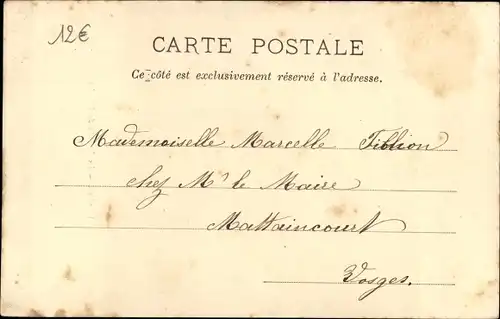 12€
CARTE POSTALE
Ce côté est exclusivement réservé à l'adresse.
Mademoiselle Marcelle
chez Mr le Maire
Mattaincourt
Vosges.